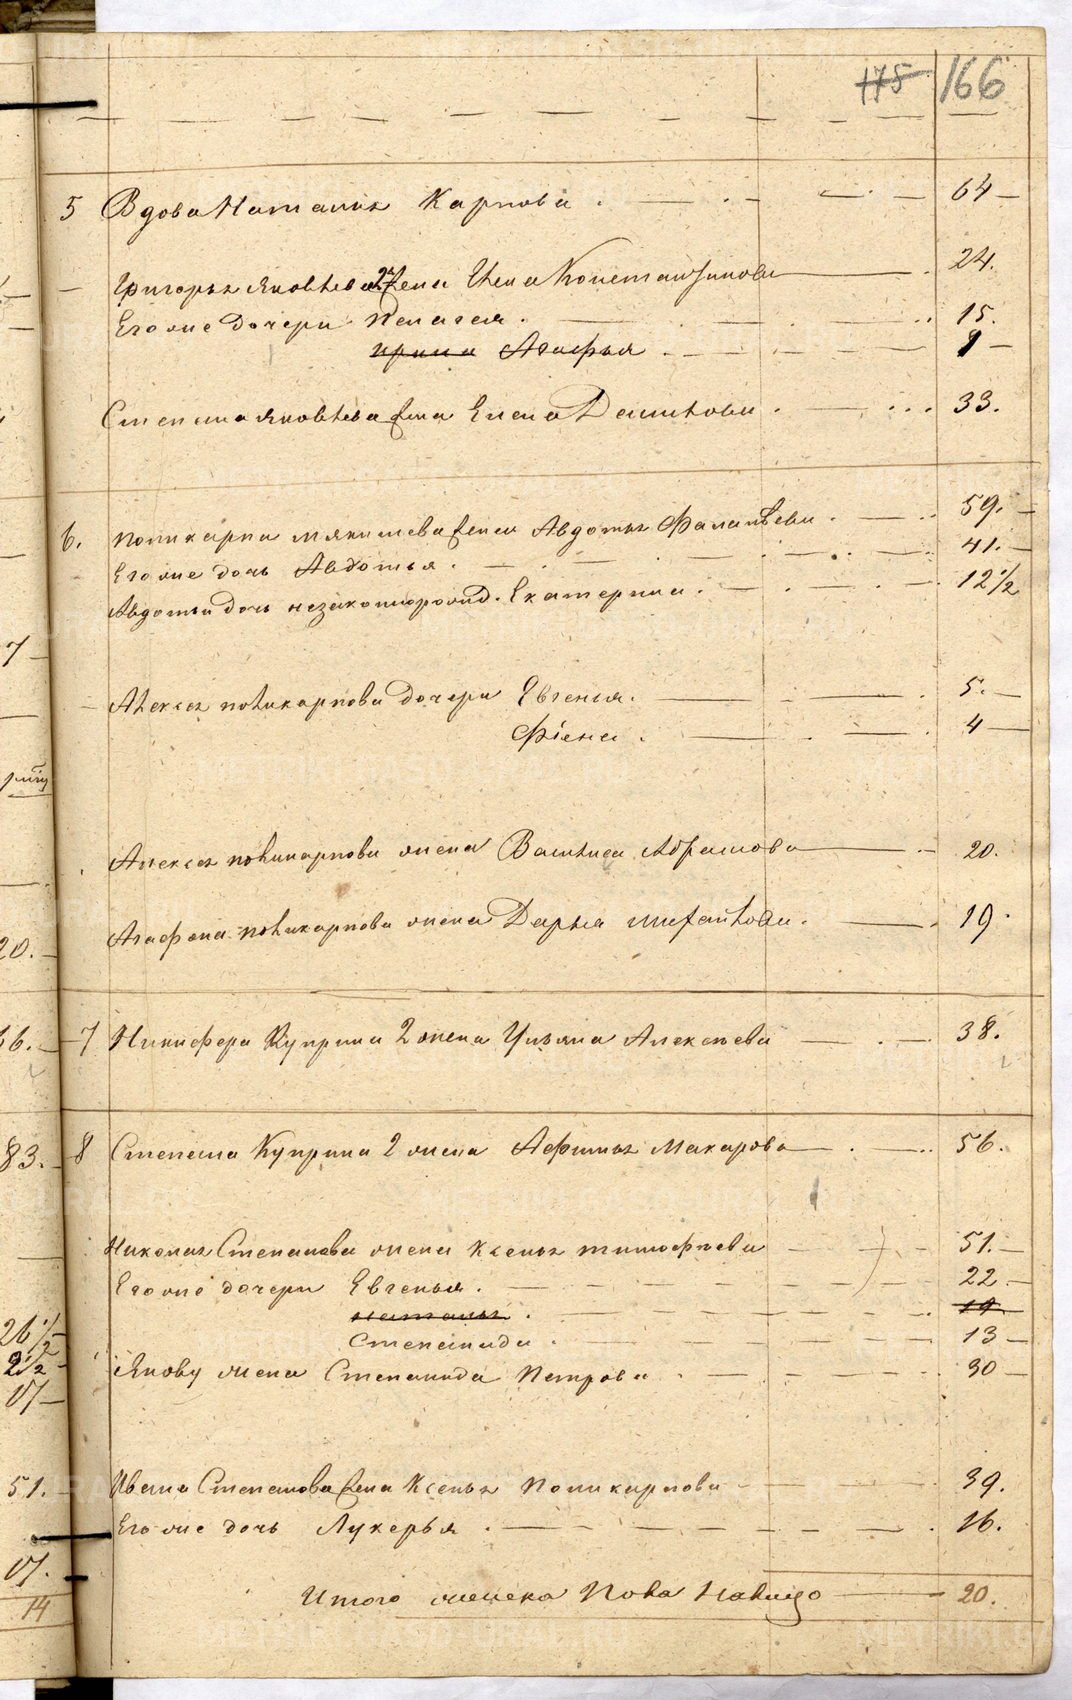 175 166
5 Вдова Наталья Карпова 64
Григорья Яковлева 2 жена Елена Константинова 24.
Его же дочери Пелагея 15.
Ирина Агафья 9
Степана Яковлева жена Елена Данилова 33.
6. Поликарпа жена Авдотья 59.
Его же дочь Авдотья 41.
Авдотьи дочь незаконнорожд. Екатерина 12 1/2
Алексея Поликарпова дочери Евгенья 5.
Фіена 4
Алексея Поликарпова жена Василиса Абрамова 20.
Агафона Поликарпова жена Дарья 19
7 Никифора Куприна 2 жена Ульяна Алексеева 38.
8 Степана Куприна 2 жена Афимья Макарова 56.
Николая Степанова жена Ксенья Тимофеева 51.
Его же дочери Евгенья 22
Наталья 19
Степанида 13
Якову жена Степанида Петрова 30
Ивана Степанова жена Ксенья Поликарпова 39.
Его же дочь Лукерья 16.
Итого женска пола налицо 20.